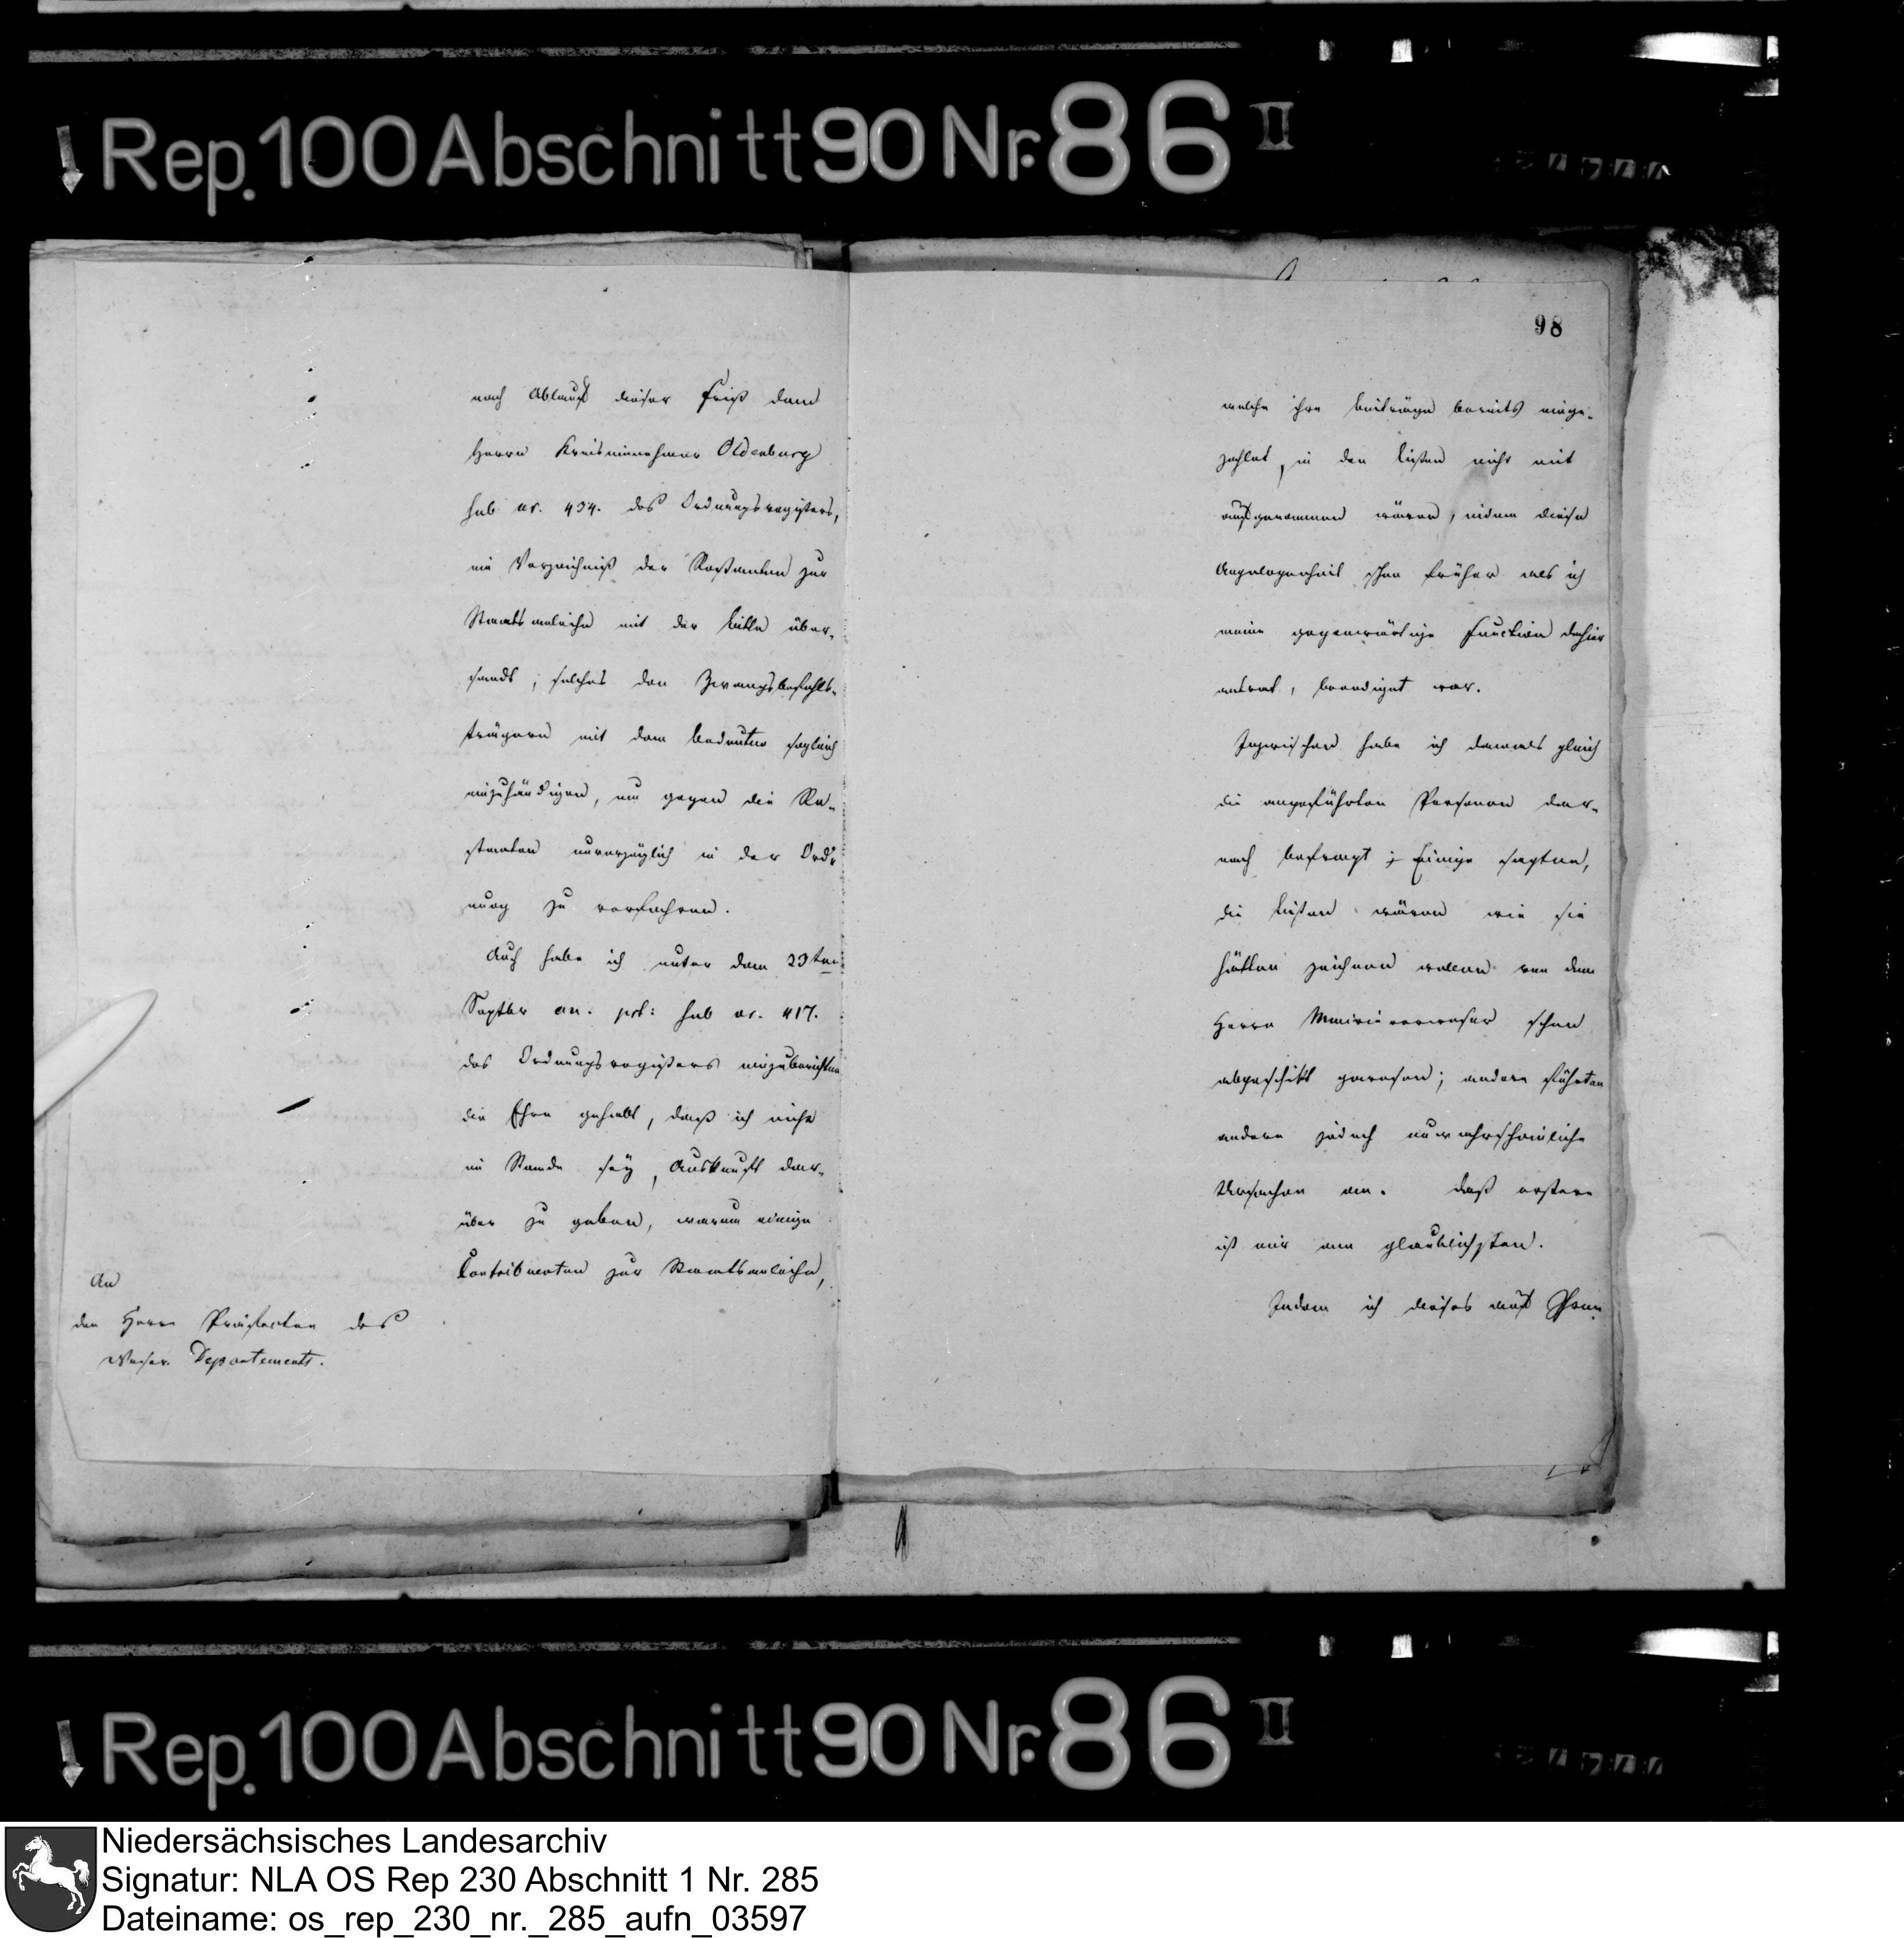 Rep. 100 Abschnitt 90 Nr. 86 II
nach Ablauf dieser Frist dem
Herrn Kreiseinnehmer Oldenburg
sub nr. 434. des Ordnungsregisters,
ein Verzeichniß der Restanten zur
Staatsanleihe mit der Bitte über-
sandt, solches den Zwangsbefehls-
trägern mit dem Bedeuten sogleich
einzuhändigen, um gegen die Re-
stanten unverzüglich in der Ord-
nung zu verfahren.
Auch habe ich unter dem 23ten
Septbr an. prt: sub nr. 417.
des Ordnungsregisters einzuberichten
die Ehre gehabt, daß ich nicht
im Stande sey, Auskunft dar-
über zu geben, warum einige
Contribuenten zur Staatsanleihe,
An
den Herrn Präfecten des
Weser Departements.
98
welche ihre Beiträge bereits einge-
zahlet, in den Listen nicht mit
aufgenommen wären, indem diese
Angelegenheit schon früher als ich
meine gegenwärtige Function dahier
antrat, beendiget war.
Inzwischen habe ich damals gleich
die angeführten Personen dar-
nach befragt; Einige sagten,
die Listen wären wie sie
hätten zeichnen wollen von dem
Herrn Mairieverweser schon
abgeschikt gewesen; andere führten
andere jedoch unwahrscheinliche
Ursachen an. Daß erstere
ist mir am glaublichsten.
Indem ich dieses auf Ihren
Rep. 100 Abschnitt 90 Nr. 86 II
Niedersächsisches Landesarchiv
Signatur: NLA OS Rep 230 Abschnitt 1 Nr. 285
Dateiname: os_rep_230_nr._285_aufn_03597